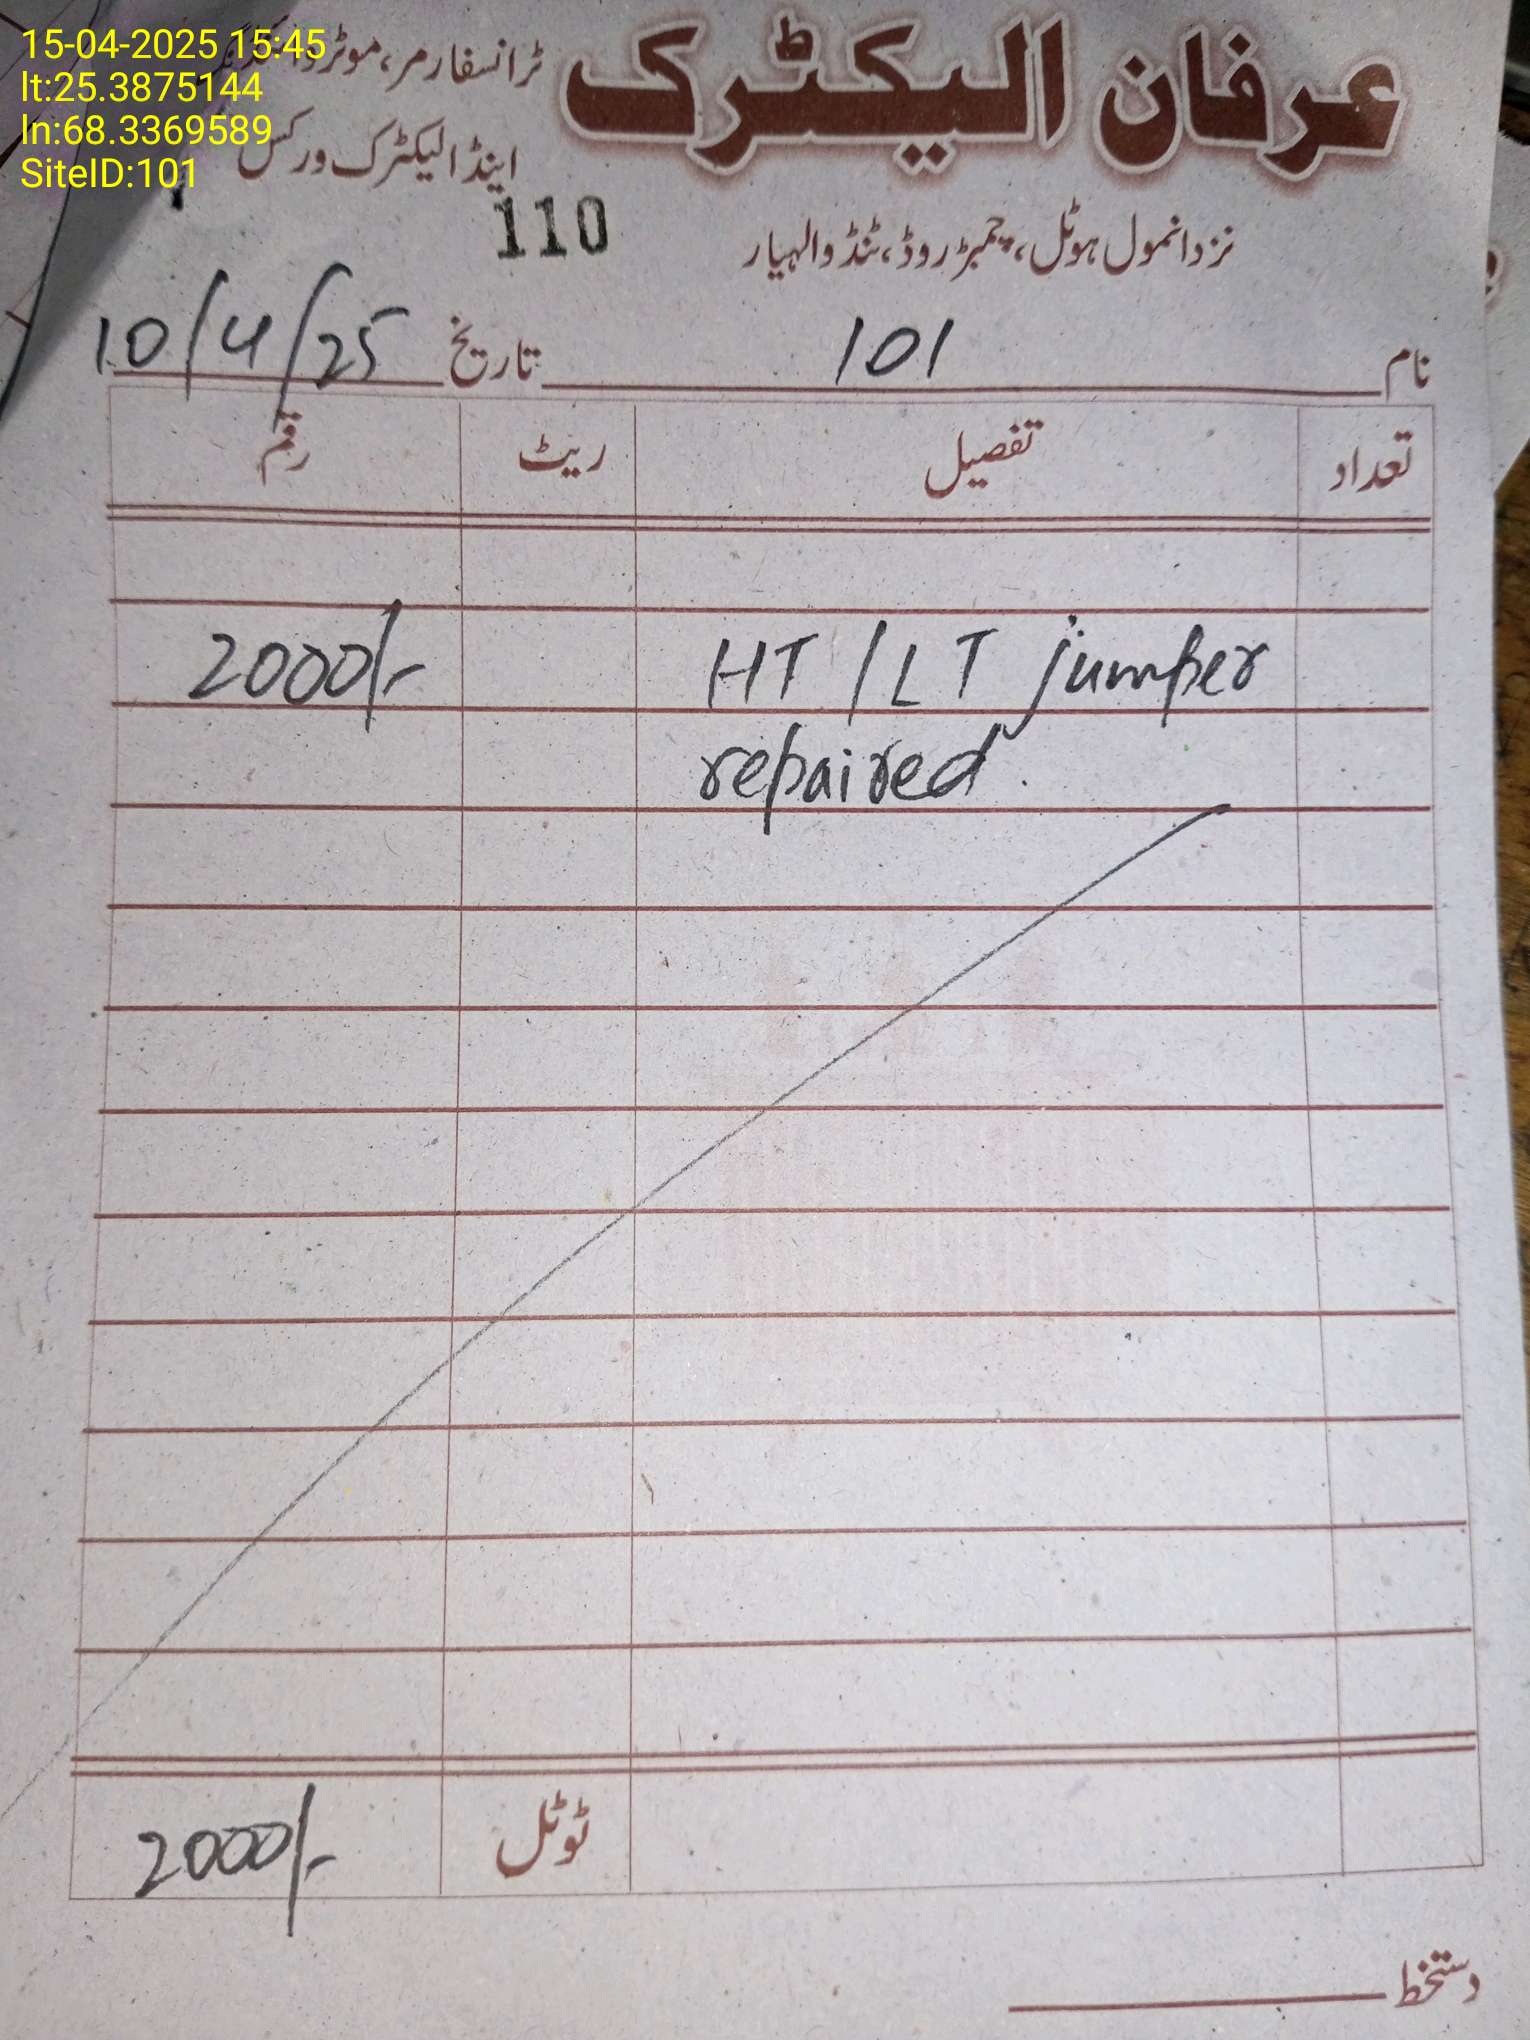 15-04-2025 15:45
lt:25.3875144
ln:68.3369589
SiteID:101
عرفان الیکٹرک
ٹرانسفارمر، موٹر
اینڈ الیکٹرک ورکس
110
نزد انمول ہوٹل، چمبڑ روڈ، ٹنڈوالہیار
نام 101 تاریخ 10/4/25
تعداد تفصیل ریٹ رقم
HT / LT jumper 2000/-
repaired.
ٹوٹل 2000/-
دستخط